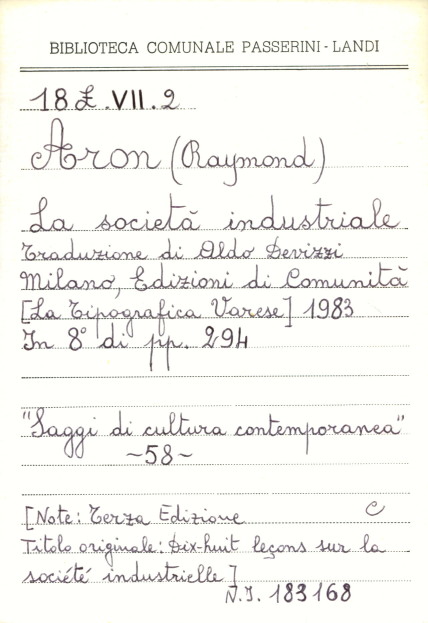 BIBLIOTECA COMUNALE PASSERINI - LANDI
18 Z .VII. 2
Aron (Raymond)
La società industriale
Traduzione di Aldo Devizzi
Milano, Edizioni di Comunità
[La Tipografica Varese] 1983
In 8° di pp. 294
"Saggi di cultura contemporanea"
~58~
[Note: Terza Edizione
C
Titolo originale: Dix-huit leçons sur la
société industrielle]
N.I. 183168